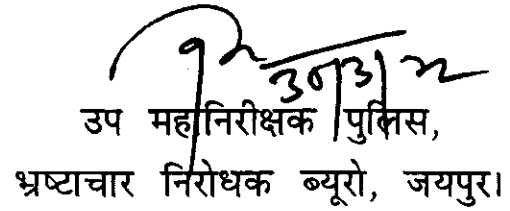 30/3/22
उप महानिरीक्षक पुलिस,
भ्रष्टाचार निरोधक ब्यूरो, जयपुर।